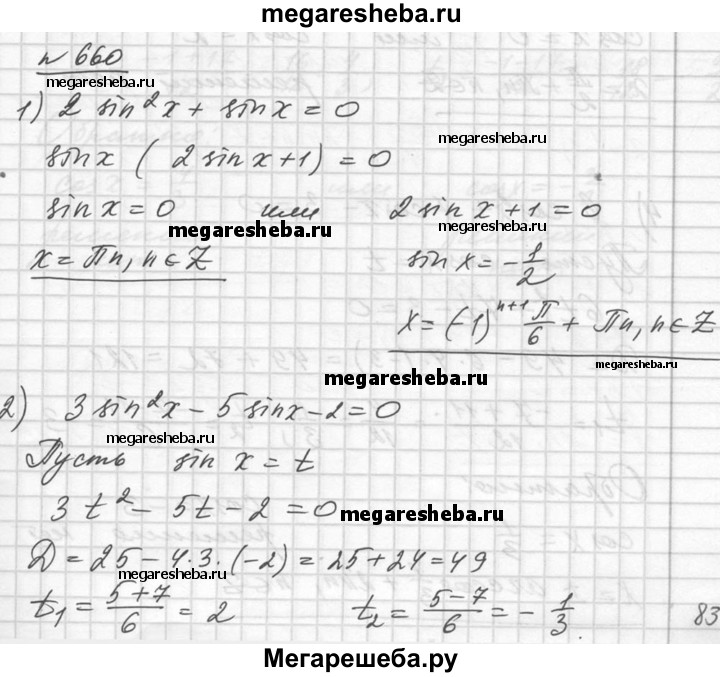 megaresheba.ru
№ 660
megaresheba.ru
1) 2 sin²x + sinx = 0
megaresheba.ru
sinx ( 2 sin x + 1) = 0
sin x = 0 или 2 sin x + 1 = 0
megaresheba.ru megaresheba.ru
x = Πn, n ∈ Z sin x = -1/2
x = (-1)^(n+1) Π/6 + Πn, n ∈ Z
megaresheba.ru
megaresheba.ru
2) 3 sin²x - 5 sinx - 2 = 0
megaresheba.ru
Пусть sin x = t
3t² - 5t - 2 = 0
megaresheba.ru
D = 25 - 4·3·(-2) = 25 + 24 = 49
megaresheba.ru
t₁ = (5+7)/6 = 2 t₂ = (5-7)/6 = -1/3
83
Мегарешеба.ру